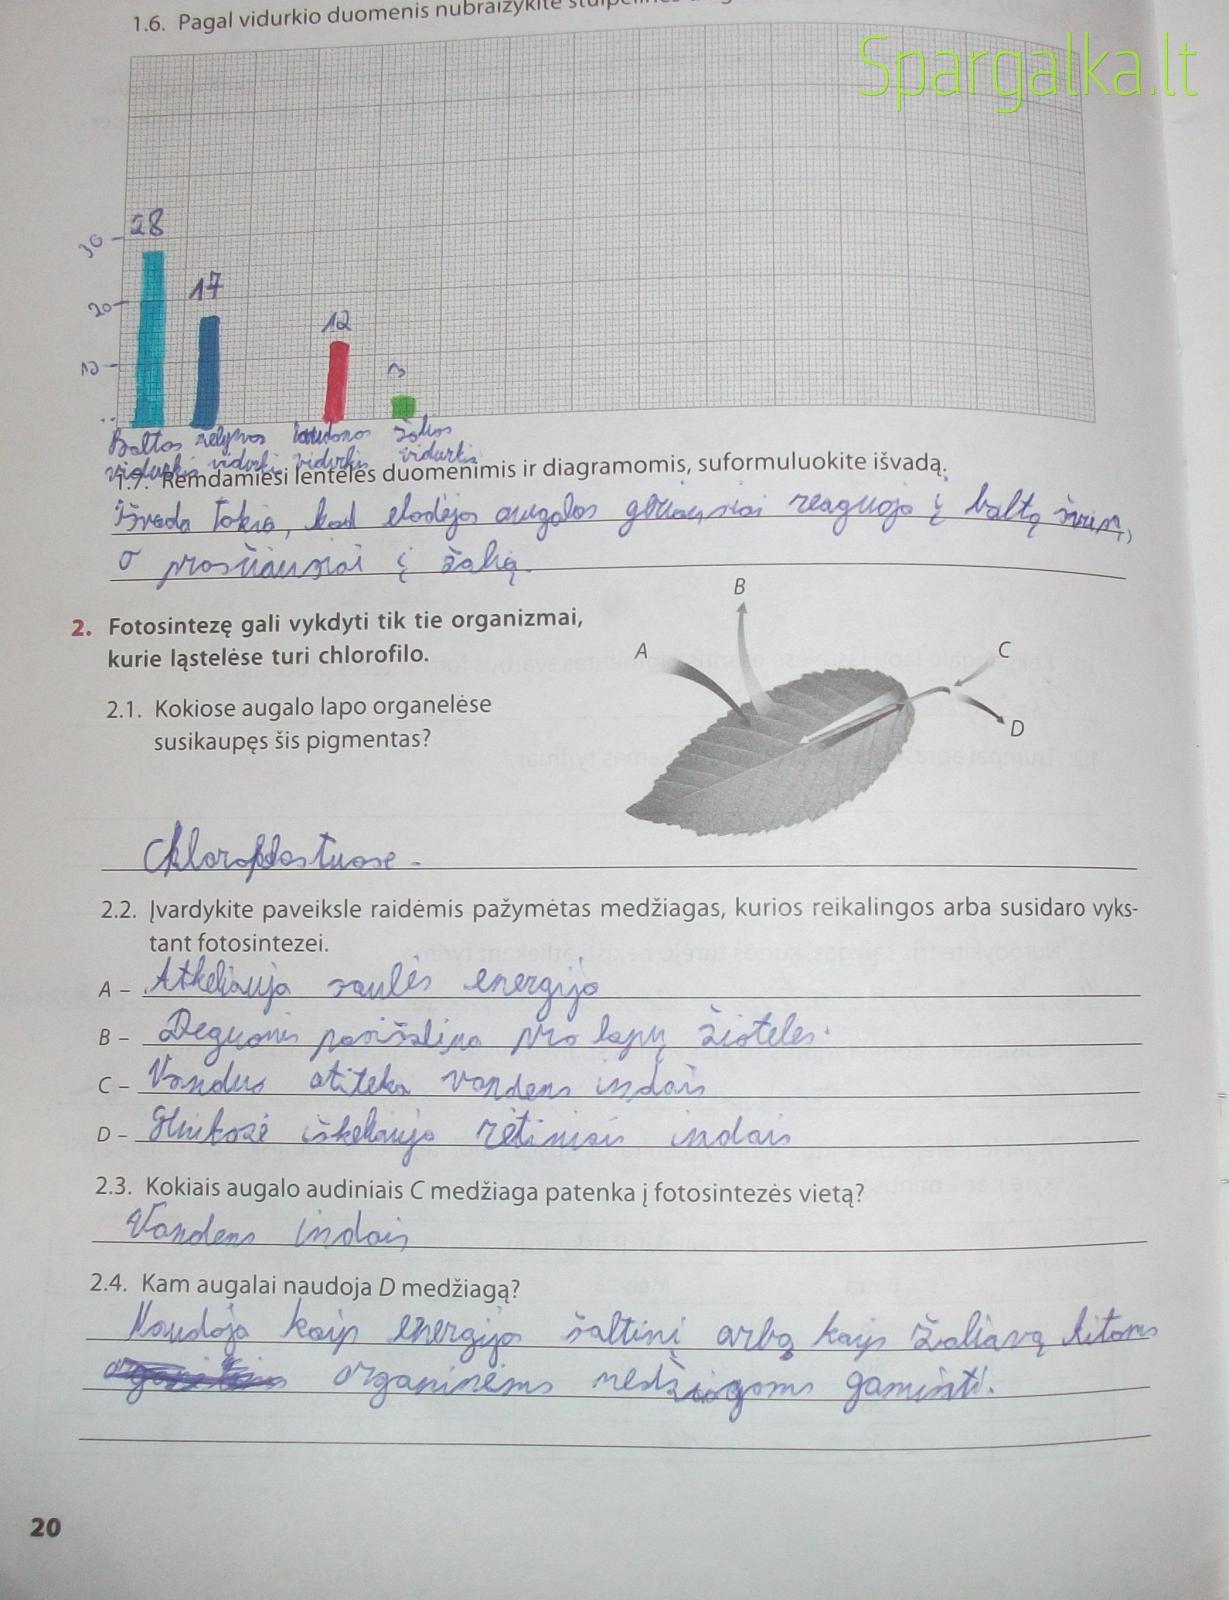 1.6. Pagal vidurkio duomenis nubraižykite
Spargalka.lt
28
30
17
20
12
10
3
Baltos mėlynos raudonos žalios
vidurkis vidurkis vidurkis vidurkis
1.7. Remdamiesi lentelės duomenimis ir diagramomis, suformuluokite išvadą.
Išvada tokia, kad elodėjos augalas geriausiai reaguoja į baltą švies,
o prasčiausiai į žalią.
2. Fotosintezę gali vykdyti tik tie organizmai,
kurie ląstelėse turi chlorofilo.
2.1. Kokiose augalo lapo organelėse
susikaupęs šis pigmentas?
A
B
C
D
Chloroplastuose.
2.2. Įvardykite paveiksle raidėmis pažymėtas medžiagas, kurios reikalingos arba susidaro vyks-
tant fotosintezei.
A – Atkeliauja saulės energija
B – Deguonis pasišalina pro lapų žioteles.
C – Vanduo atiteka vandens indais
D – Gliukozė iškeliauja rėtiniais indais
2.3. Kokiais augalo audiniais C medžiaga patenka į fotosintezės vietą?
Vandens indais
2.4. Kam augalai naudoja D medžiagą?
Naudoja kaip energijos šaltinį arba kaip žaliavą kitoms
organinėms medžiagoms gaminti.
20